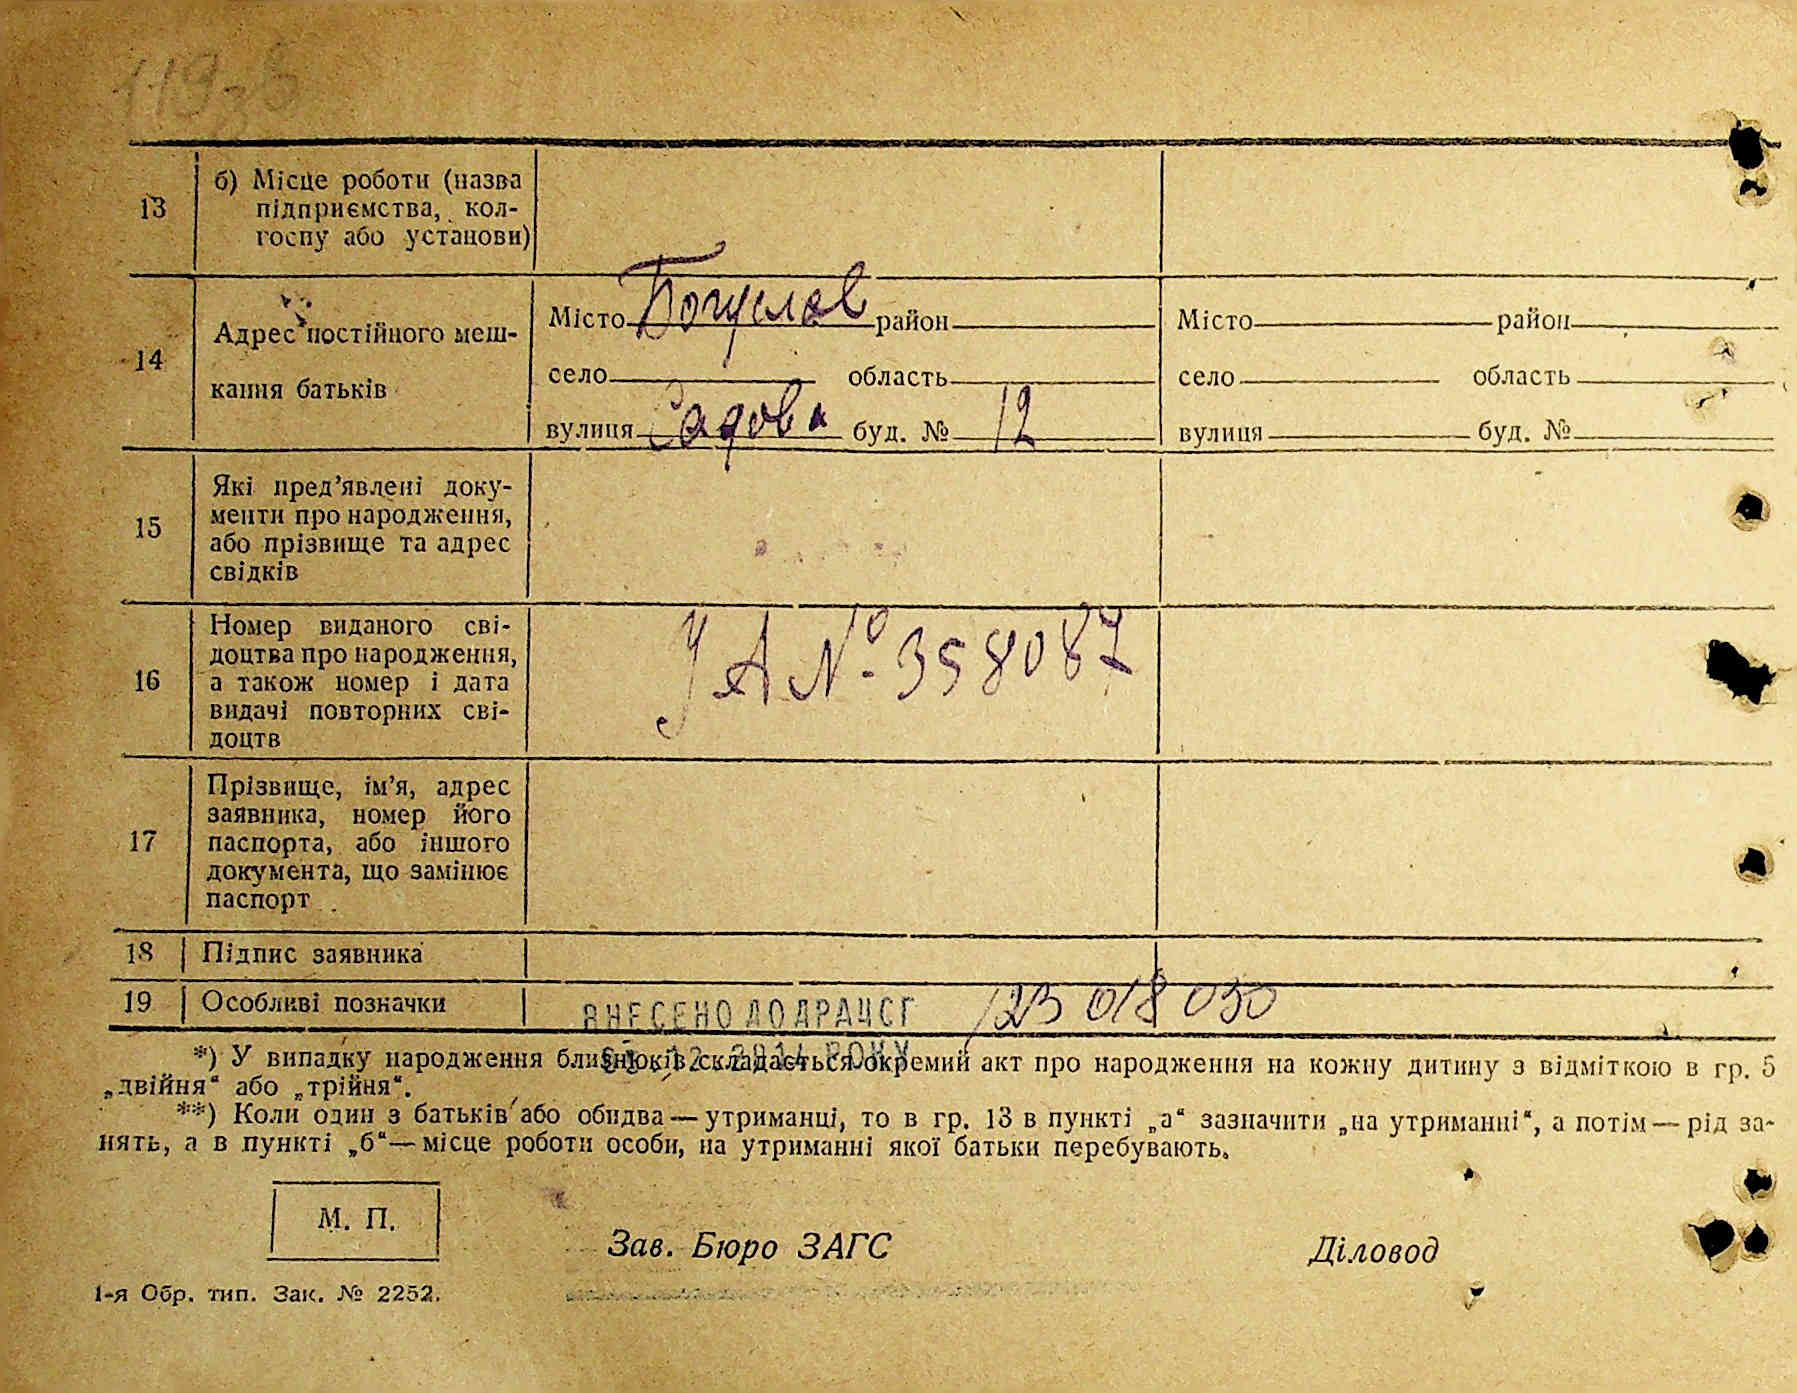 13
б) Місце роботи (назва
підприємства, кол-
госпу або установи)
14
Адрес постійного меш-
кання батьків
Місто Богуслав район
село область
вулиця Садова буд. № 12
Місто район
село область
вулиця буд. №
15
Які пред’явлені доку-
менти про народження,
або прізвище та адрес
свідків
16
Номер виданого сві-
доцтва про народження,
а також номер і дата
видачі повторних сві-
доцтв
УА № 358087
17
Прізвище, ім’я, адрес
заявника, номер його
паспорта, або іншого
документа, що замінює
паспорт
18 Підпис заявника
19 Особливі позначки
ВНЕСЕНО ДО ДРАЦСГ
12.2014 РОКУ
*) У випадку народження близнюків складається окремий акт про народження на кожну дитину з відміткою в гр. 5
„двійня“ або „трійня“.
**) Коли один з батьків або обидва — утриманці, то в гр. 13 в пункті „а“ зазначити „на утриманні“, а потім — рід за-
нять, а в пункті „б“ — місце роботи особи, на утриманні якої батьки перебувають.
М. П.
Зав. Бюро ЗАГС
Діловод
1-я Обр. тип. Зак. № 2252.